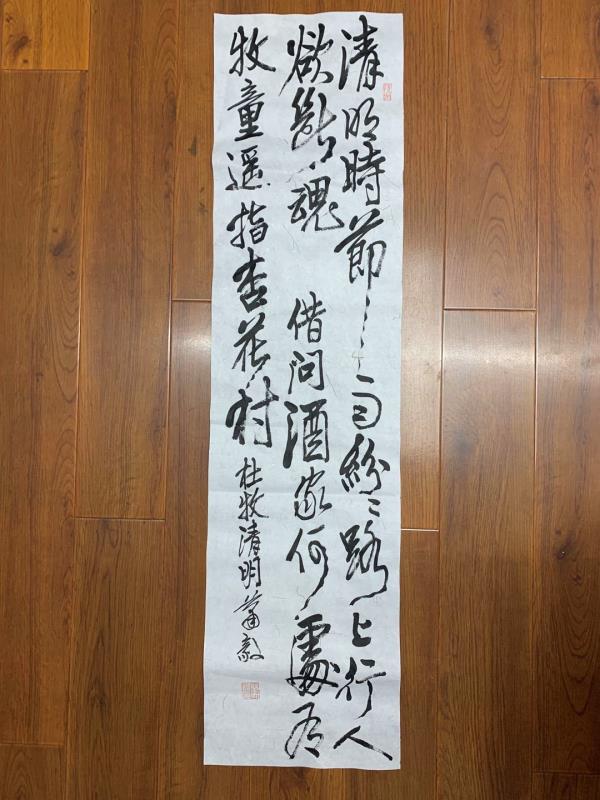 清明時節雨紛〻路上行人
欲斷魂 借問酒家何處有
牧童遥指杏花村 杜牧清明 蕭毅